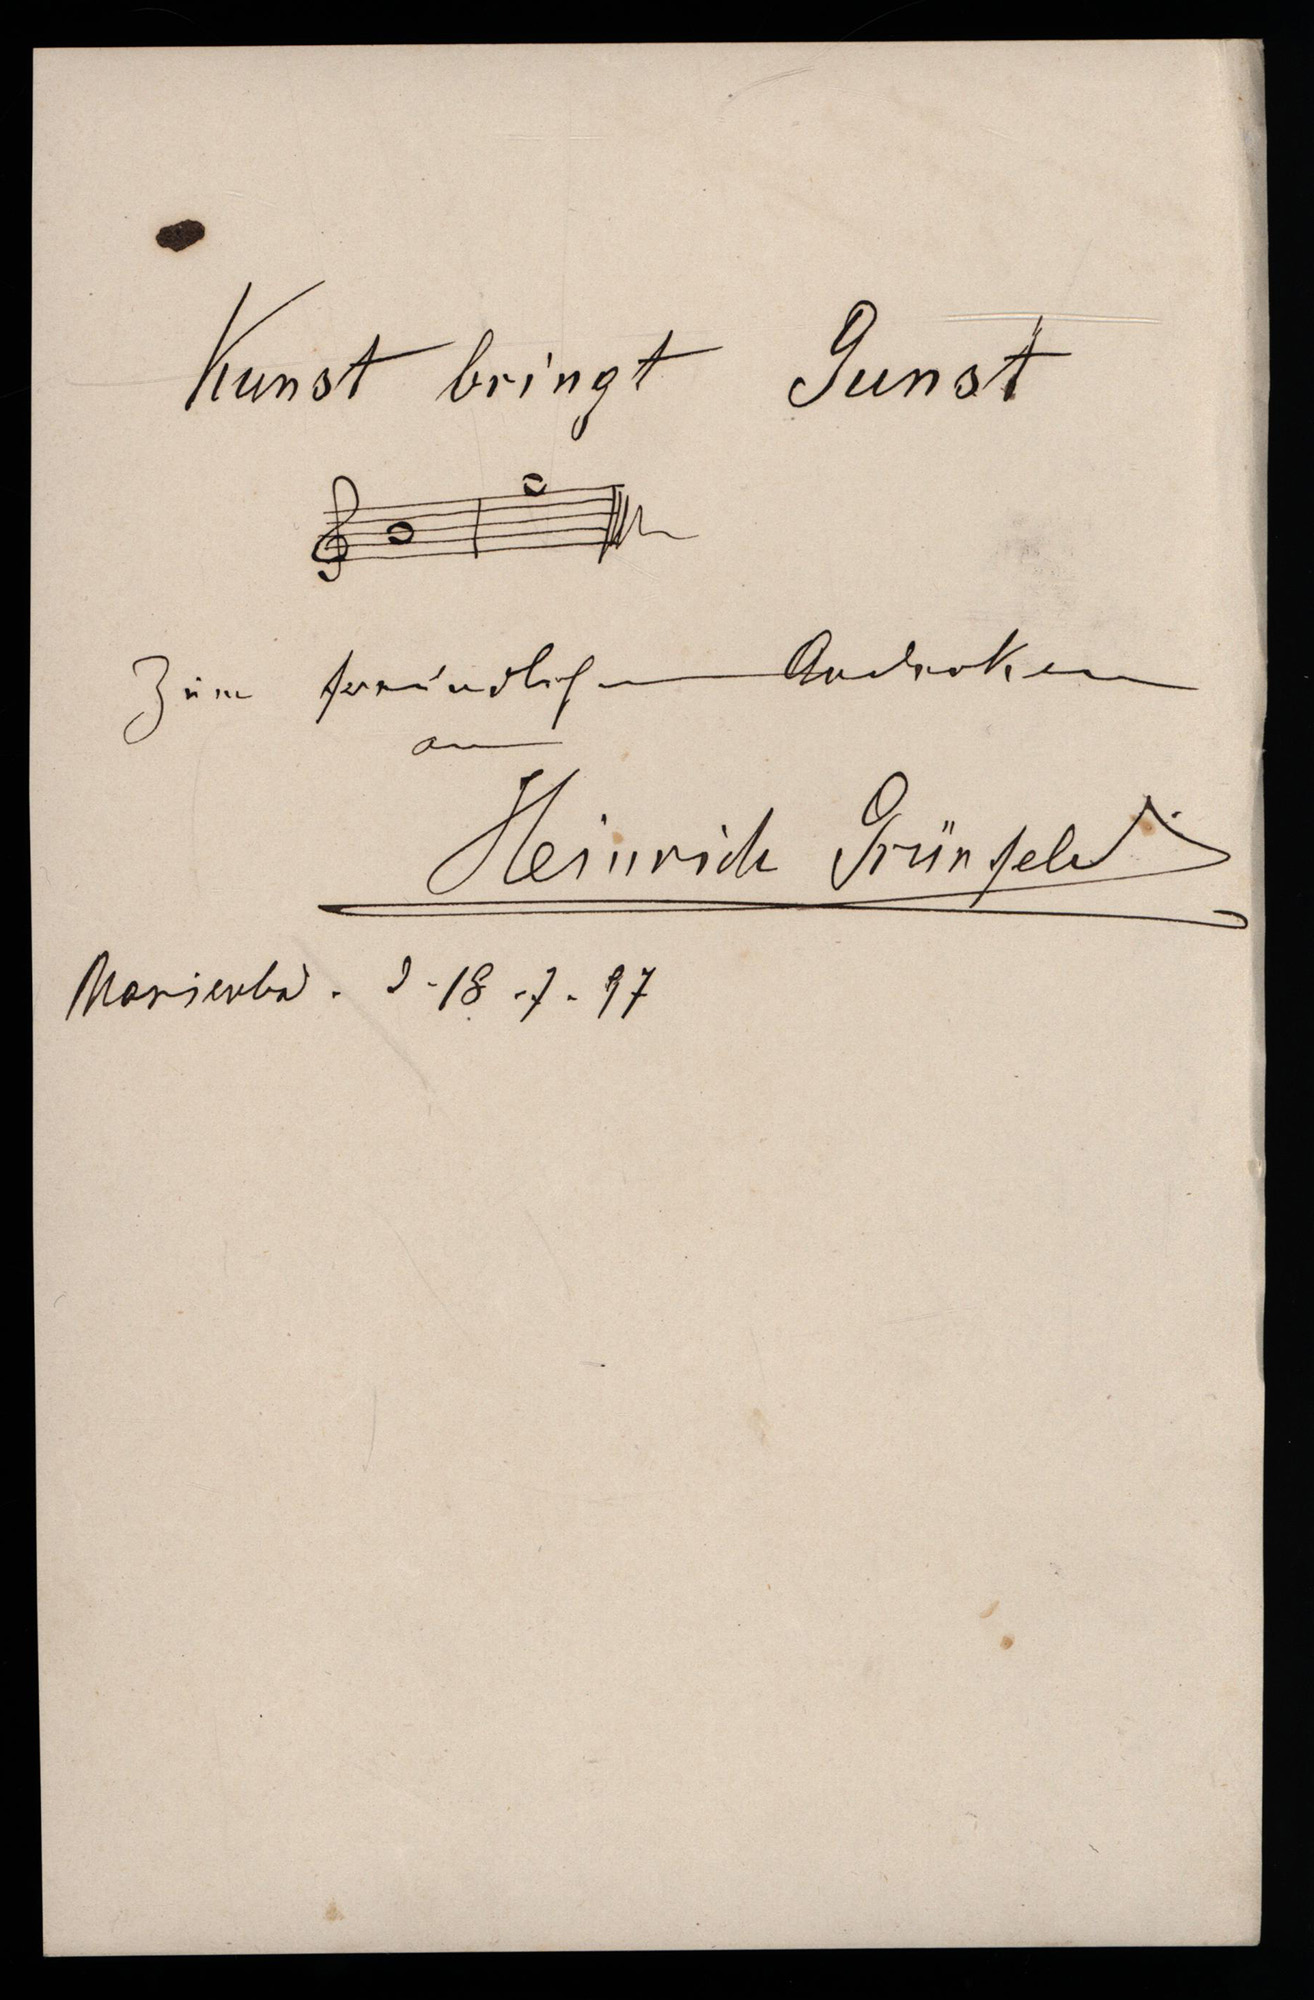 Kunst bringt Gunst
Zum freundlichen Andenken
an
Heinrich Grünfeld
Marienbad. 18.7.97